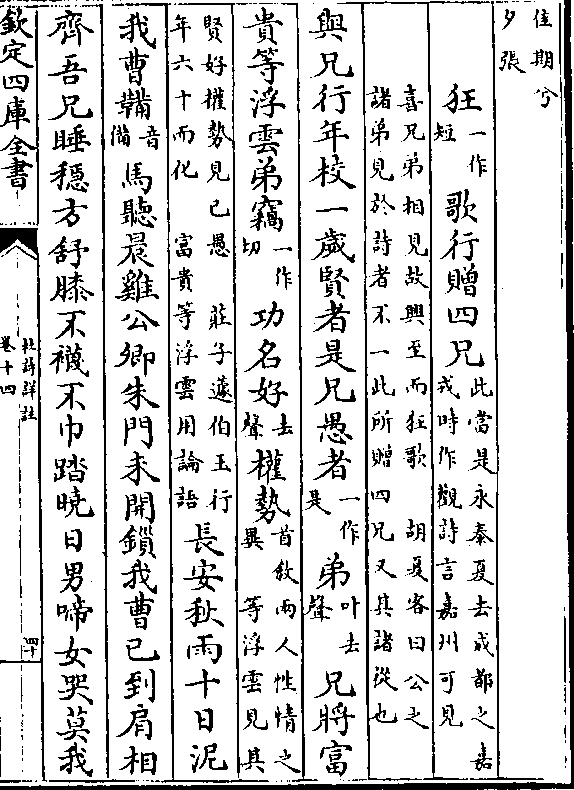 佳期兮
夕張
狂一作短歌行贈四兄此當是永泰夏去成都之嘉戎時作觀詩言嘉州可見
喜兄弟相見故興至而狂歌 胡夏客曰公之諸弟見於詩者不一此所贈四兄又其諸從也
與兄行年校一歲賢者是兄愚者一作是弟叶去聲兄將富
貴等浮雲弟竊一作切功名好去聲權勢首敘兩人性情之異 等浮雲見其
賢好權勢見已愚 莊子蘧伯玉行年六十而化 富貴等浮雲用論語長安秋雨十日泥
我曹鞴音備馬聽晨雞公卿朱門未開鎖我曹已到肩相
齊吾兄睡穩方舒膝不襪不巾踏曉日男啼女哭莫我
欽定四庫全書
杜詩詳註
卷十四
四十